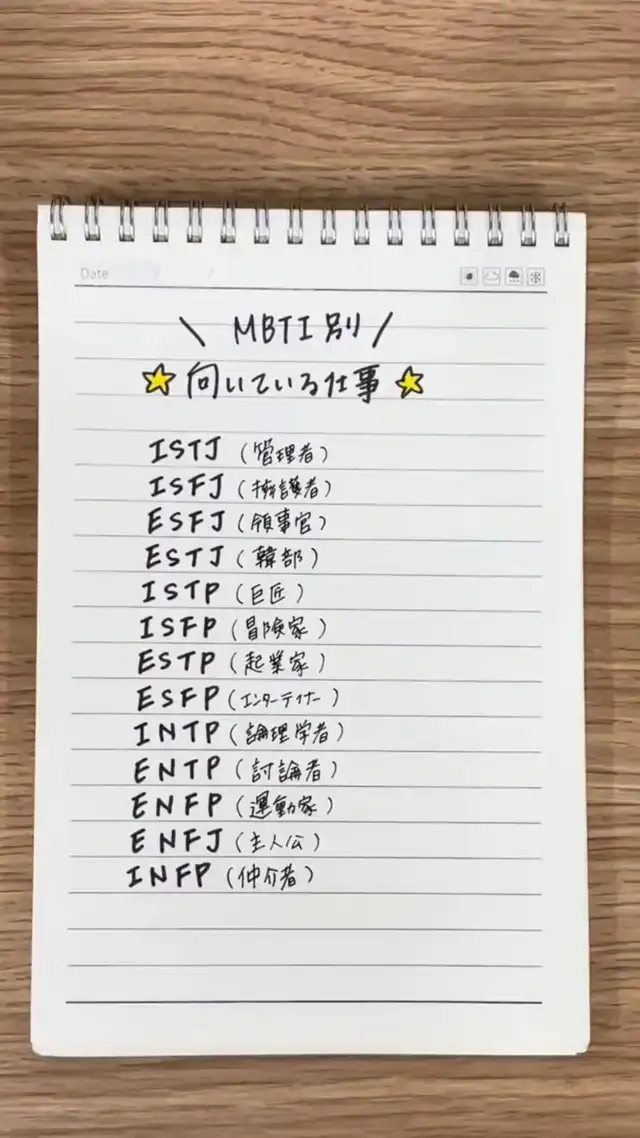 Date / /
\ MBTI別 /
向いている仕事
ISTJ (管理者)
ISFJ (擁護者)
ESFJ (領事官)
ESTJ (幹部)
ISTP (巨匠)
ISFP (冒険家)
ESTP (起業家)
ESFP (エンターテイナー)
INTP (論理学者)
ENTP (討論者)
ENFP (運動家)
ENFJ (主人公)
INFP (仲介者)